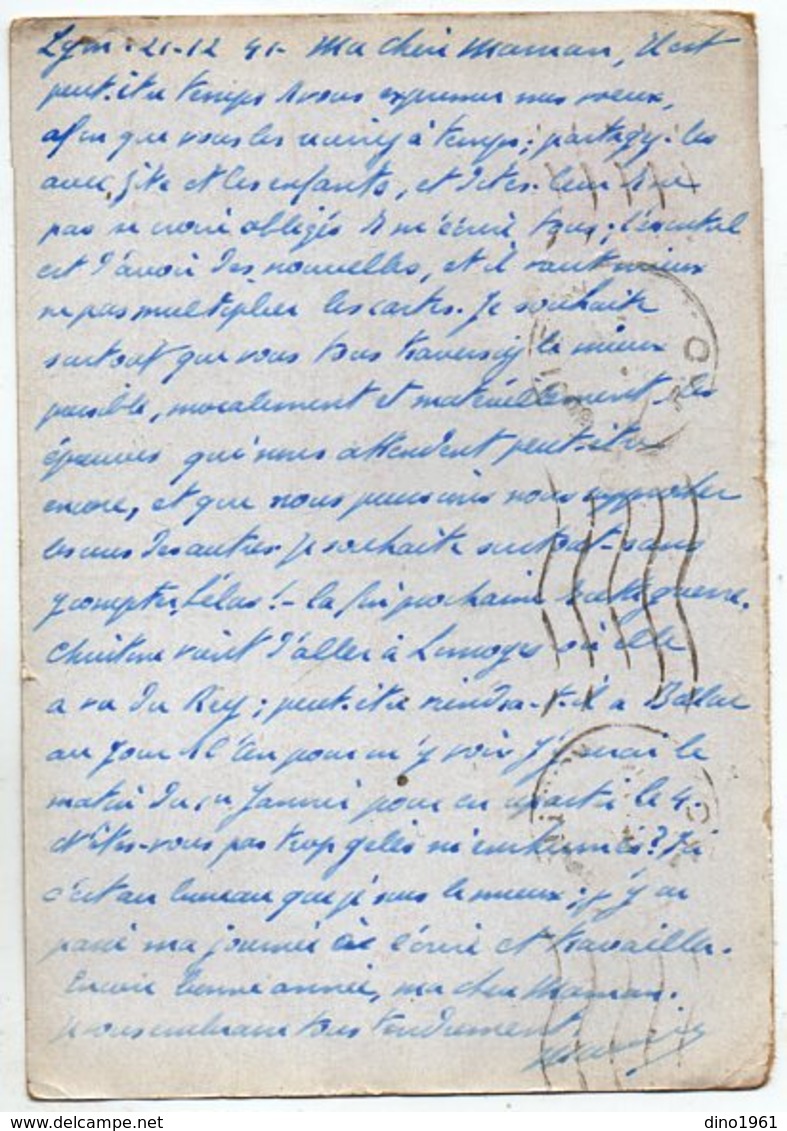 Lyon. 21-12 41- Ma chère Maman, Il est
peut-être temps de vous exprimer mes voeux,
afin que vous les receviez à temps; partagez-les
avec et les enfants, et dites-leur de ne
pas se croire obligés de m'écrire tous; l'essentiel
est d'avoir des nouvelles, et il vaut mieux
ne pas multiplier les cartes. Je souhaite
surtout que vous tous traversiez le mieux
possible, moralement et matériellement les
épreuves qui nous attendent peut-être
encore, et que nous puissions nous rapprocher
les uns des autres. Je souhaite surtout - sans
y compter, hélas! - la fin prochaine de cette guerre.
Christine vient d'aller à Limoges où elle
a vu du Rey; peut-être viendra-t-il à Bellac
au Jour de l'An pour m'y voir. J'y serai le
matin du 1er Janvier pour en repartir le 4.
N'êtes-vous pas trop gelés ni enrhumés? Ici
c'est au bureau que je suis le mieux; j'y ai
passé ma journée à écrire et travailler.
Encore bonne année, ma chère Maman.
Je vous embrasse tous tendrement
dino1961